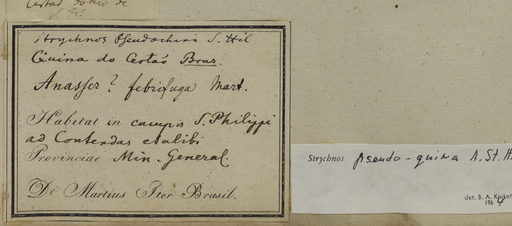 Certão
Strychnos Pseudochina S. Hil
Quina do Certão Bras.
Anasser? febrifuga Mart.
Habitat in campis S. Philippi
ad Contendas et alibi
Provinciae Min. General.
Dr Martius Iter Brasil.
Strychnos pseudo-quina A. St. H.
det. B. A. Krukof
1964